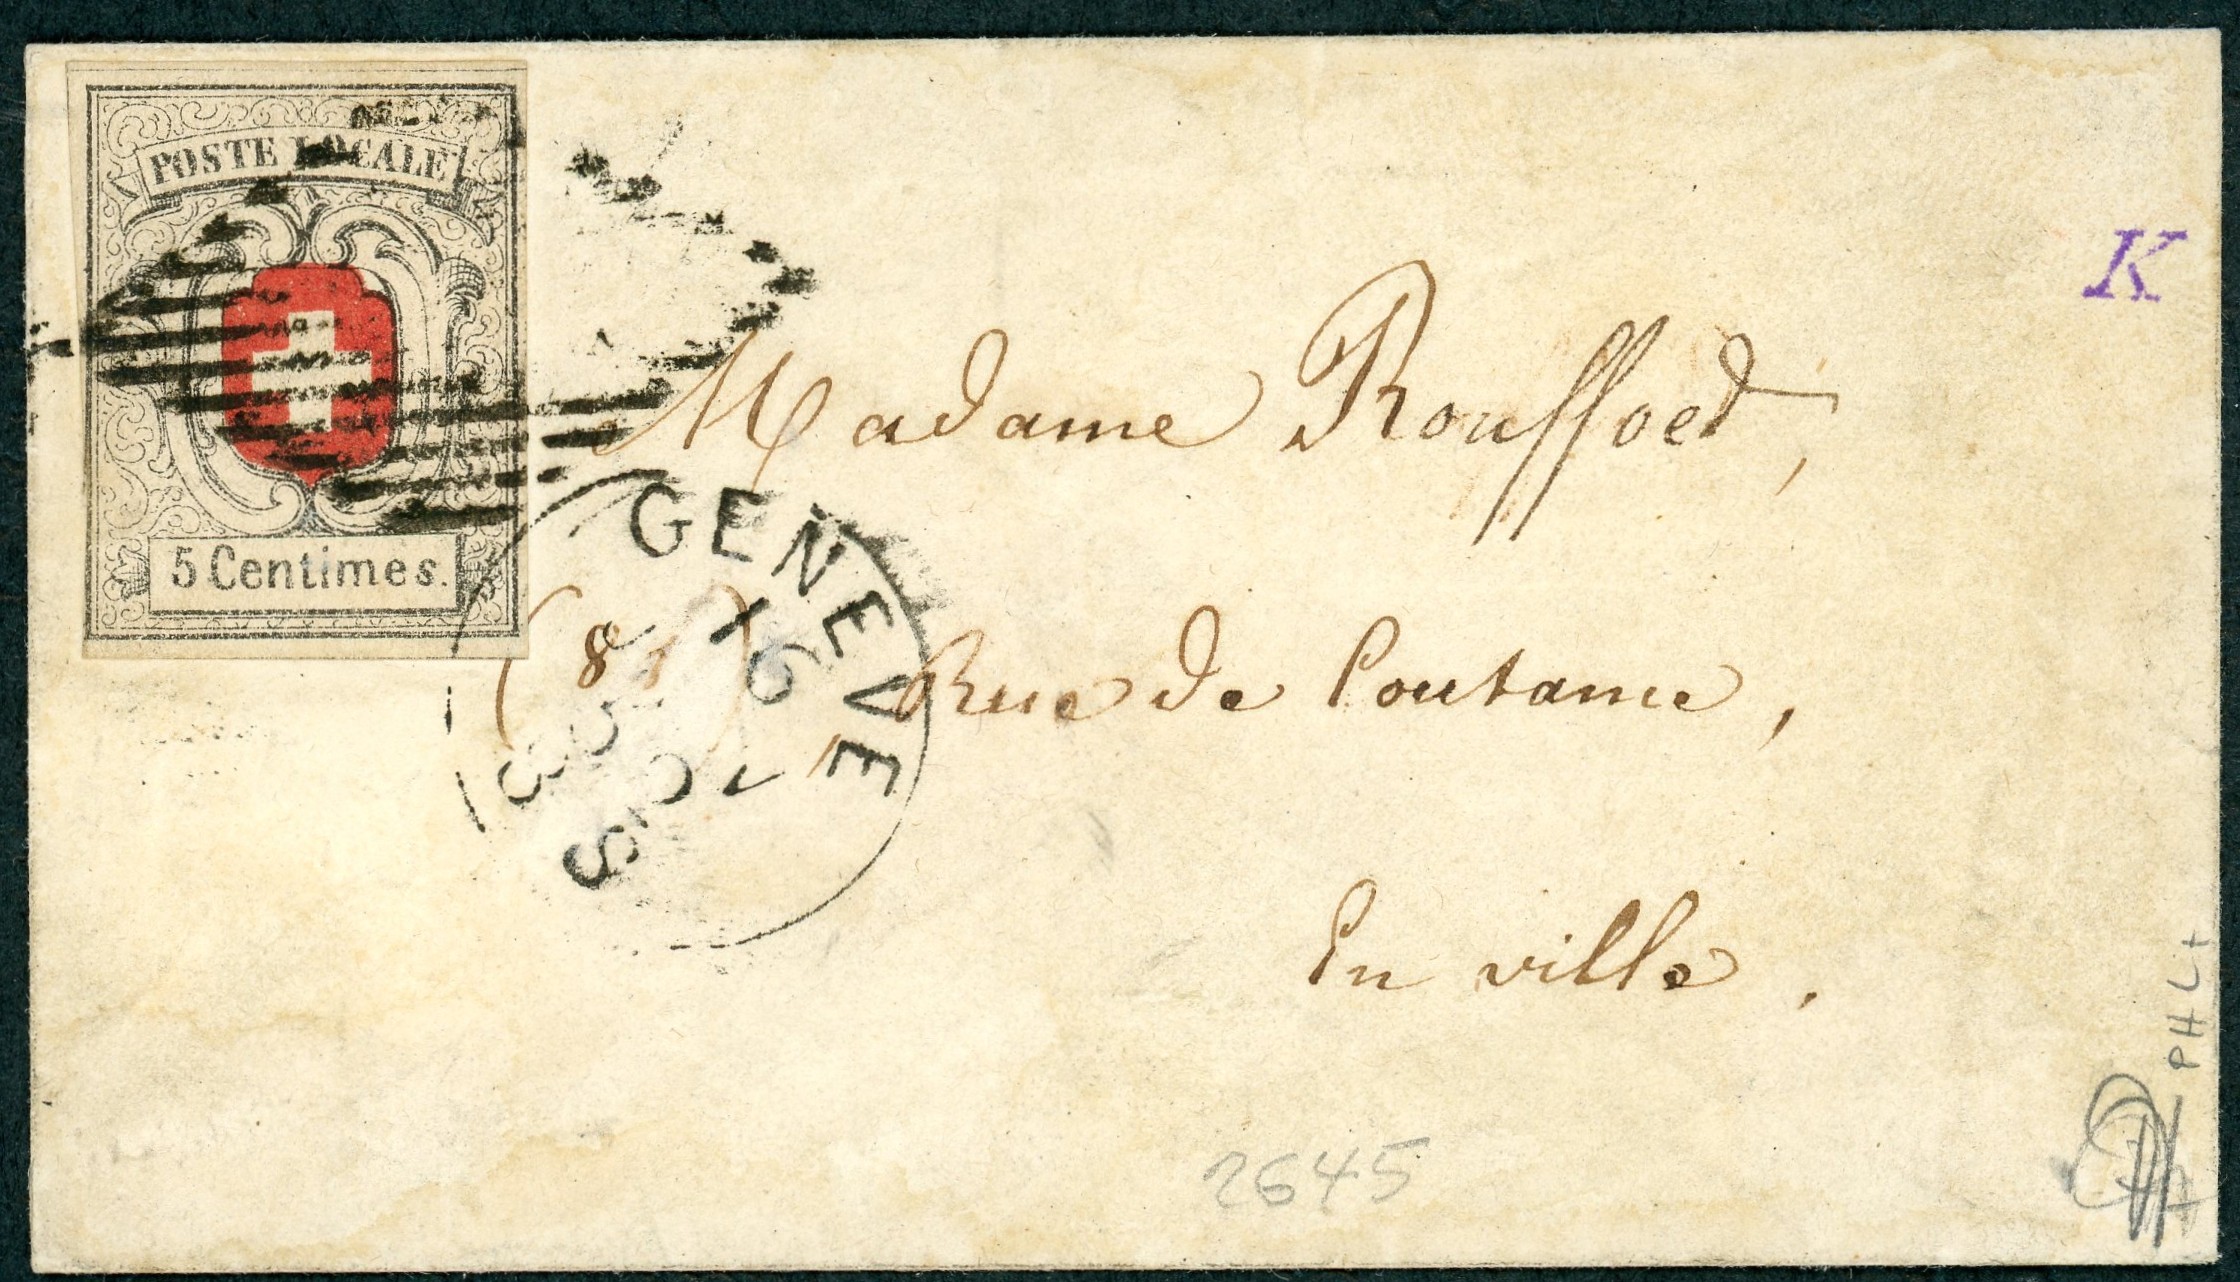 POSTE LOCALE
5 Centimes.
K
Madame Rouffoed,
GENEVE
(81) Rue de Coutance,
En ville.
2645
PHLt